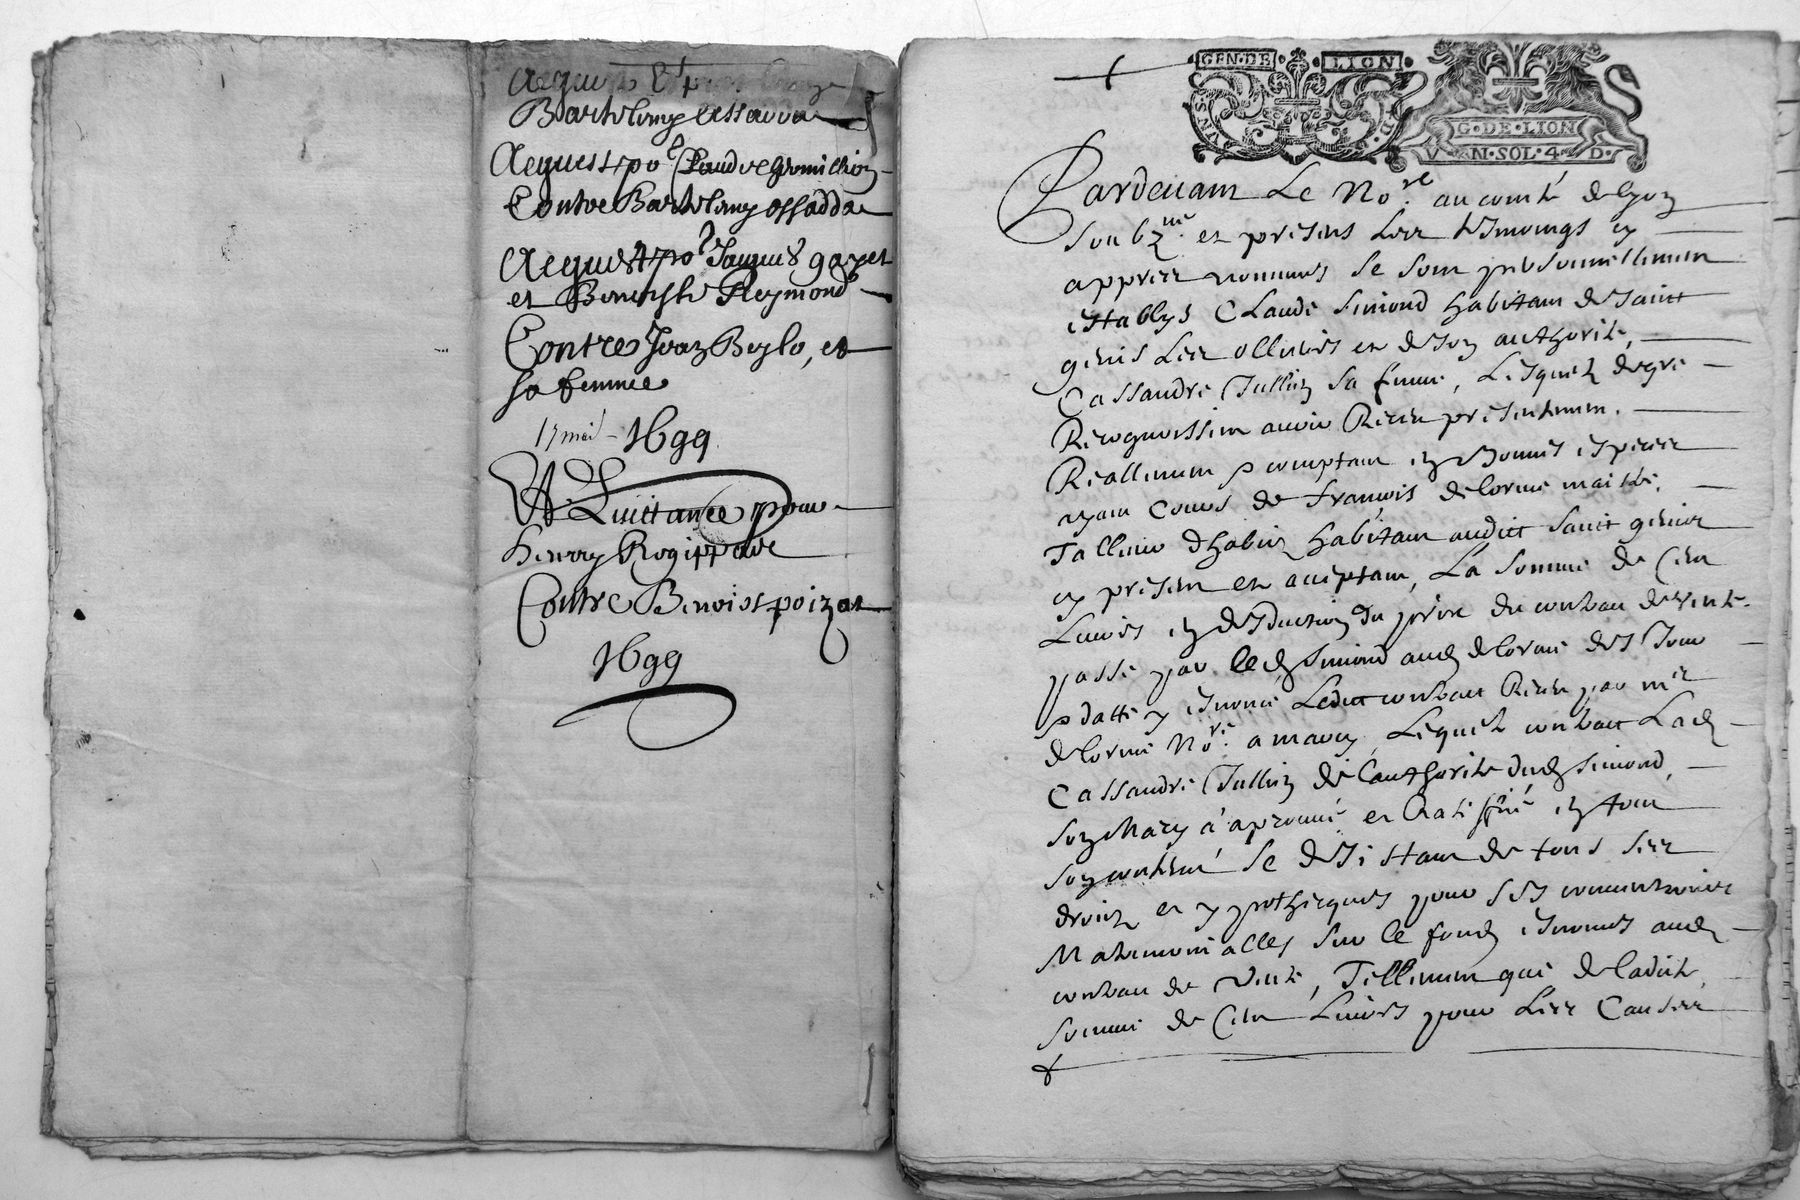 Acquest
Barthelemy assadda
Acquest po.r Claude grimillion
Contre Barthelemy assadda
Acquest po.r Jacques gayet
et Benoiste Reymond
Contre Jean Beylo, et
sa femme
17 mai 1699
Quittance pour
henry Rogippade
Contre Benoist poizat
1699
GEN·DE· LION·
G·DE·LION
V N·SOL·4 D·
Pardevant Le No.re au comté de lyon
soubz.né et presens Les tesmoings cy
appres nommes se sont personnellement
establys Claude Simond habitant de saint
genis Les ollieres et de son authorité,
Cassandre Jullin sa femme, Lesquelz de gré
Recognoissent avoir Receu presentement
Reallement comptant en bonnes especes
ayant Cours de françois delorme maistre
Tallieur dhabitz habitant audict sainct genis
cy present et acceptant, La somme de Cent
Livres en desduction du prix du contract de vente
passé par led Simond aud delorme des Jour
datte y enoncé Ledict contract Receu par me
delorme No.re a marcy, Lequel contract Lad
Cassandre Jullin de lauthorité dud Simond,
son Mary à aprouvé et Ratiffié en tout
son contenu se desistant de tous ses
droictz et ypothecques pour ses conventions
Matrimonialles sur le fondz enoncés aud
contract de vente, Tellement que de ladicte
somme de Cent Livres pour Les Causes